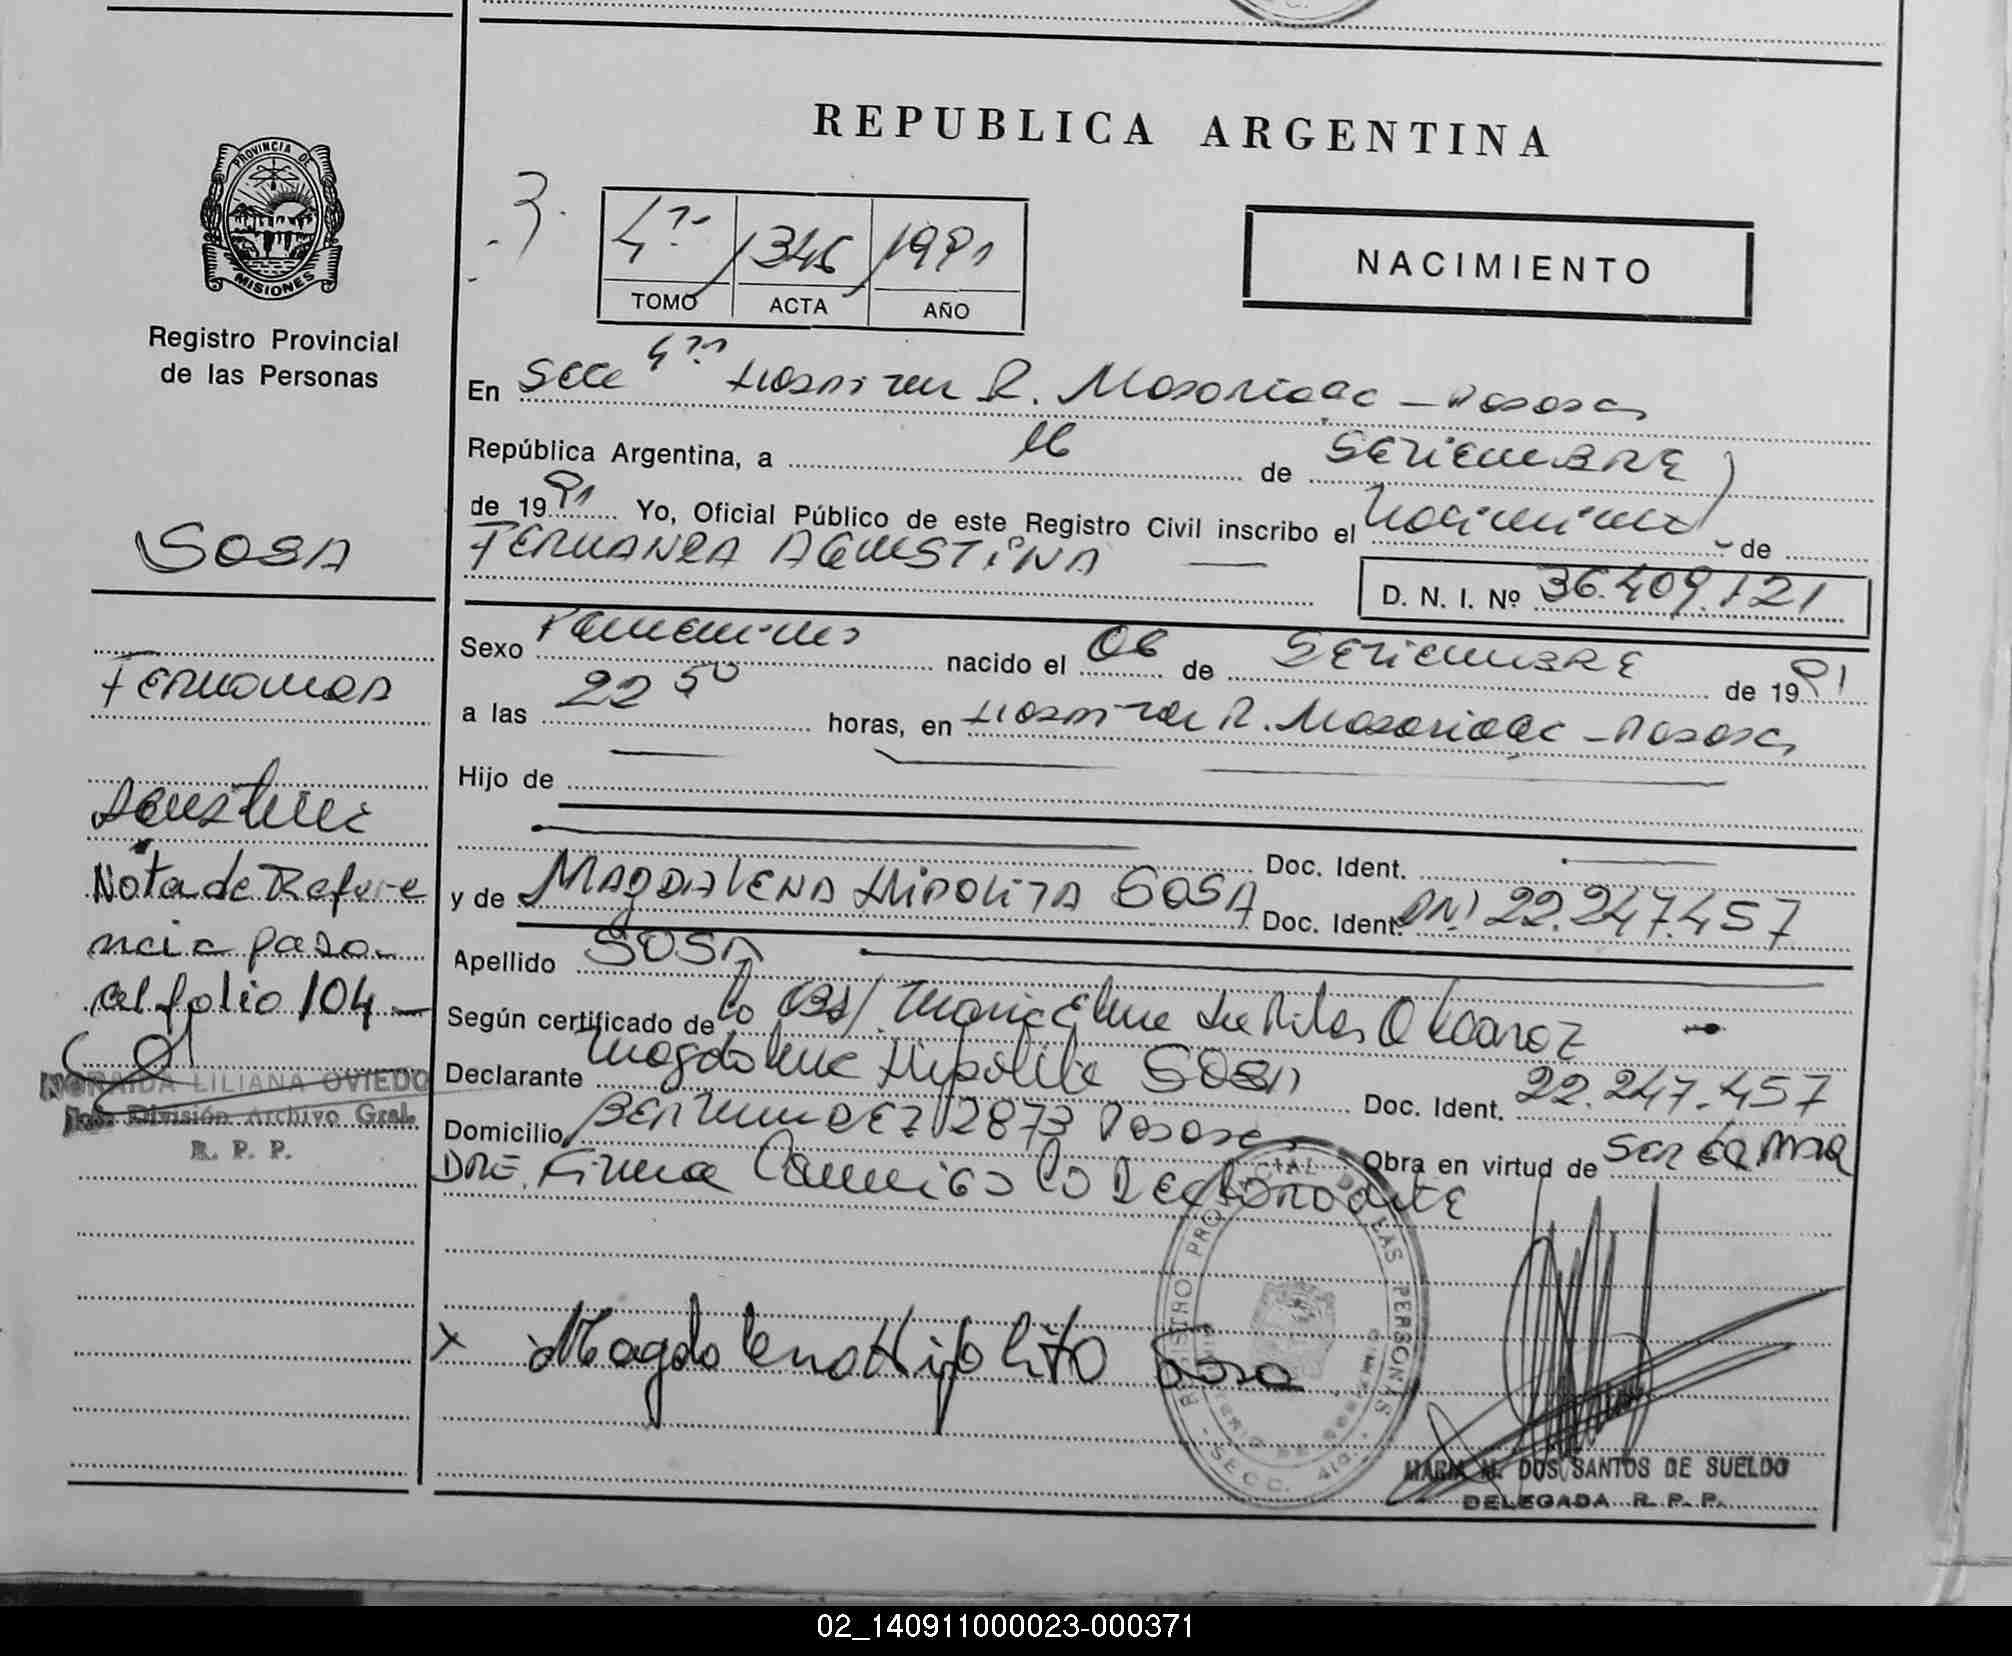 REPUBLICA ARGENTINA
PROVINCIA DE
MISIONES
Registro Provincial
de las Personas
4ta 1346 1991
TOMO ACTA AÑO
NACIMIENTO
En Secc 4ta Hospital R. Madariaga - Posadas
República Argentina, a 16 de SETIEMBRE
de 1991 Yo, Oficial Público de este Registro Civil inscribo el Nacimiento de
FERNANDA AGUSTINA
D. N. I. Nº 36.409.121
Sexo Femenino nacido el 06 de SETIEMBRE de 1991
a las 22 50 horas, en Hospital R. Madariaga - Posadas
Hijo de
Doc. Ident.
y de MAGDALENA HIPOLITA SOSA Doc. Ident. DNI 22.247.457
Apellido SOSA
Según certificado de la Obst. Maria Elena
Declarante Magdalena Hipolita SOSA Doc. Ident. 22.247.457
Domicilio BERMUDEZ 2873 Posadas Obra en virtud de ser la Mma
DRE. Firma Conmigo la Declarante
x Magdalena Hipolita Sosa
REGISTRO PROVINCIAL DE LAS PERSONAS
SECC. 4ta.
MARIA M. DOS SANTOS DE SUELDO
DELEGADA R. P. P.
SOSA
Fernanda
Agustina
Nota de Refere
ncia pasa
al folio 104
NORAIDA LILIANA OVIEDO
División Archivo Gral.
R. P. P.
02_140911000023-000371